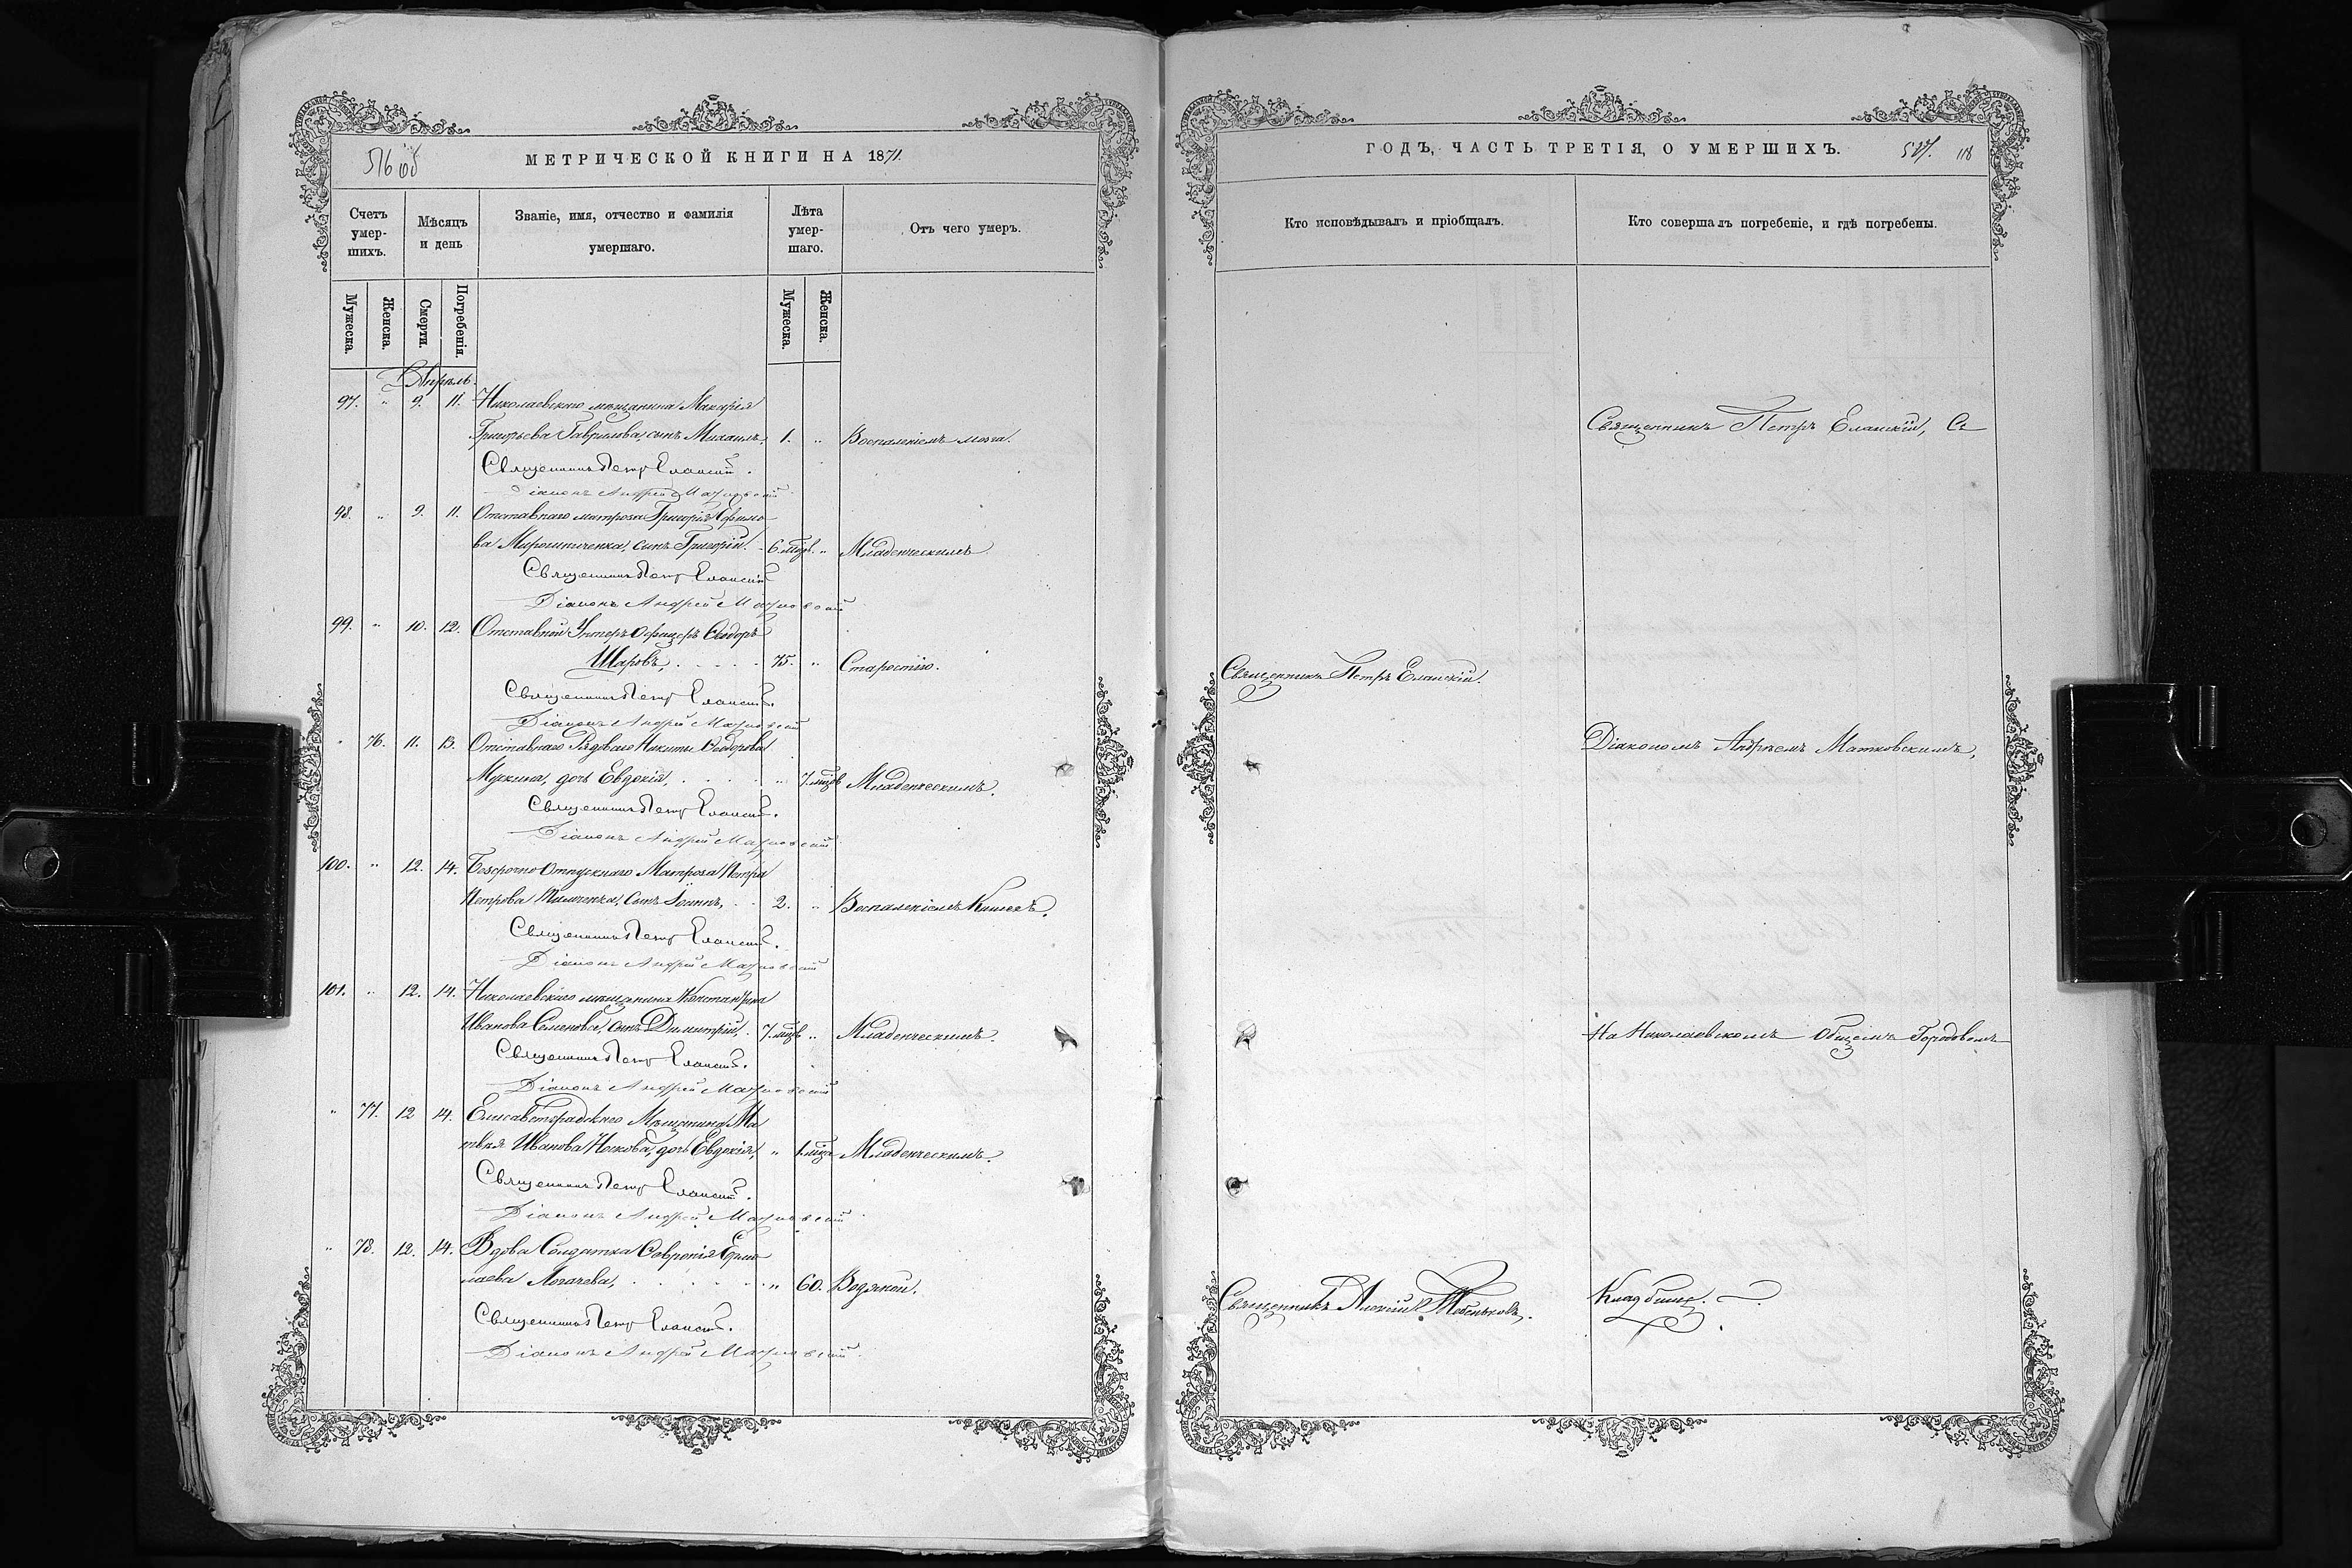 516 об
МЕТРИЧЕСКОЙ КНИГИ НА 1871.
Счетъ умер-шихъ.
Мѣсяцъ и день
Званіе, имя, отчество и фамилія умершаго.
Лѣта умер-шаго.
Отъ чего умеръ.
Мужеска.
Женска.
Смерти.
Погребенія.
Мужеска.
Женска.
Апрѣль.
97. " 9. 11. Николаевскаго мѣщанина Макарія
Григорьева Гаврилова, сынъ Михаилъ, 1. " Воспаленіемъ мозга.
Священникъ Петръ Еланскій.
Діаконъ Андрей Матковскій
98. " 9. 11. Отставнаго матроса Григорія Ефимо
ва Мирошниченка, сынъ Григорій. 6. мцв. " Младенческимъ
Священникъ Петръ Еланскій
Діаконъ Андрей Матковскій
99. " 10. 12. Отставной Унтеръ Офицеръ Ѳеодоръ
Шаровъ, . . . . 75. " Старостію.
Священникъ Петръ Еланскій.
Діаконъ Андрей Матковскій
" 76. 11. 13. Отставнаго Рядоваго Никиты Ѳеодорова
дочь Евдокія, . . . " 7. мцв Младенческимъ.
Священникъ Петръ Еланскій.
Діаконъ Андрей Матковскій
100. " 12. 14. Безсрочно Отпускнаго Матроса Петра
Петрова сынъ Іоаннъ, . . 2. " Воспаленіемъ Кишекъ.
Священникъ Петръ Еланскій.
Діаконъ Андрей Матковскій
101. " 12. 14. Николаевскаго мѣщанина Константина
Иванова Семенова, сынъ Димитрій, . 7. мцв " Младенческимъ.
Священникъ Петръ Еланскій.
Діаконъ Андрей Матковскій
" 77. 12 14. Елисаветградскаго Мѣщанина Ма
твея Иванова Носкова, дочь Евдокія, " 1. мца Младенческимъ.
Священникъ Петръ Еланскій.
Діаконъ Андрей Матковскій
" 78. 12. 14. Вдова Солдатка Ермо
лаева Логачева, . . . . . . " 60. Водяной.
Священникъ Петръ Еланскій.
Діаконъ Андрей Матковскій
ГОДЪ, ЧАСТЬ ТРЕТІЯ, О УМЕРШИХЪ.
517. 118
Кто исповѣдывалъ и пріобщалъ.
Кто совершалъ погребеніе, и гдѣ погребены.
Священникъ Петръ Еланскій, Съ
Священникъ Петръ Еланскій.
Діакономъ Андреемъ Матковскимъ,
На Николаевскомъ Общемъ Городовомъ
Священникъ Алексій
Кладбищѣ.